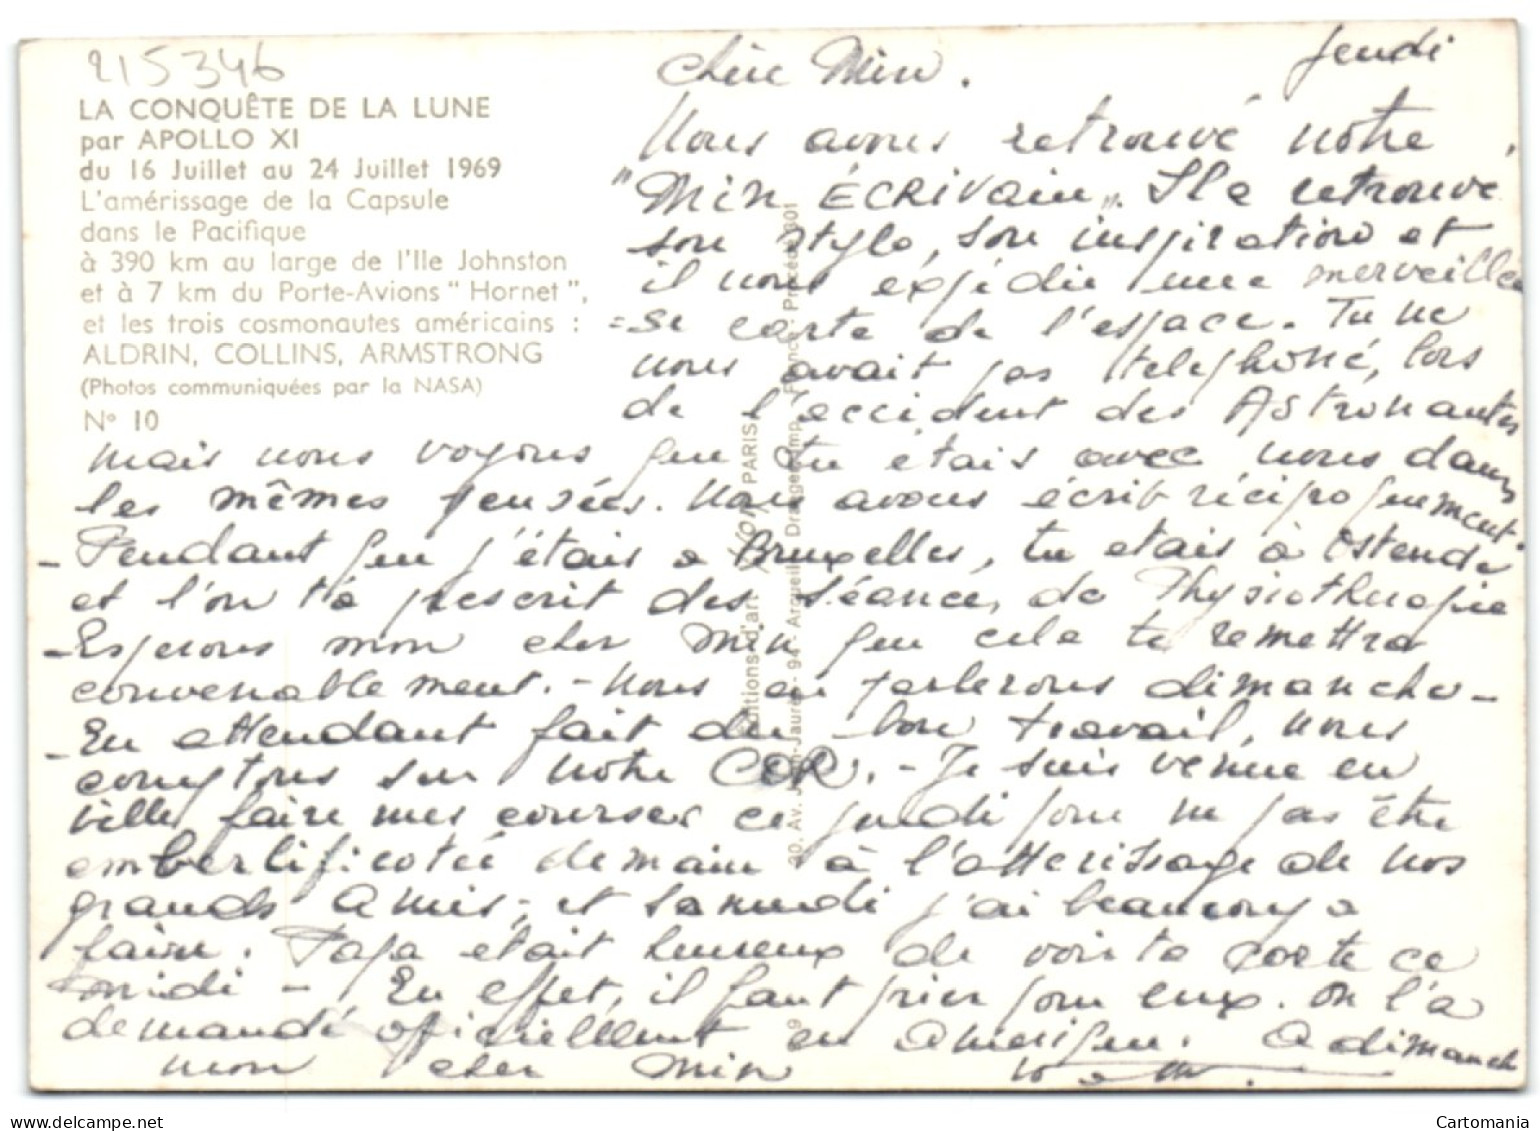 215346
LA CONQUÊTE DE LA LUNE
par APOLLO XI
du 16 Juillet au 24 Juillet 1969
L'amérissage de la Capsule
dans le Pacifique
à 390 km au large de l'Ile Johnston
et à 7 km du Porte-Avions "Hornet",
et les trois cosmonautes américains :
ALDRIN, COLLINS, ARMSTRONG
(Photos communiquées par la NASA)
N° 10
Jeudi
Chère Min.
Nous avons retrouvé notre
"Min ÉCRIVain". Il a retrouvé
son style, son inspiration et
il nous expédie une merveilleu
=se carte de l'espace. Tu ne
nous avait pas telephoné, lors
de l'accident des Astronautes
mais nous voyons que tu étais avec nous dans
les mêmes pensées. Nous avons écrit réciproquement.
- Pendant que j'étais a Bruxelles, tu etais à Ostende
et l'on t'a prescrit des séances de Physiotherapie
- Esperons mon cher Min que cela te remettra
convenablement. - Nous en parlerons dimanche -
- En attendant fait du bon travail, nous
comptons sur notre COR. - Je suis venue en
ville faire mes courses ce jeudi pour ne pas être
emberlificotée demain à l'atterissage de nos
grands Amis, et samedi j'ai beaucoup a
faire. Papa etait heureux de voir ta carte ce
midi - En effet, il faut prier pour eux. on l'a
demandé officiellement en Amerique. A dimanche
mon cher Min
Editions d'art YVON PARIS
30, Av. Jean-Jaurès - 94 - Arcueil